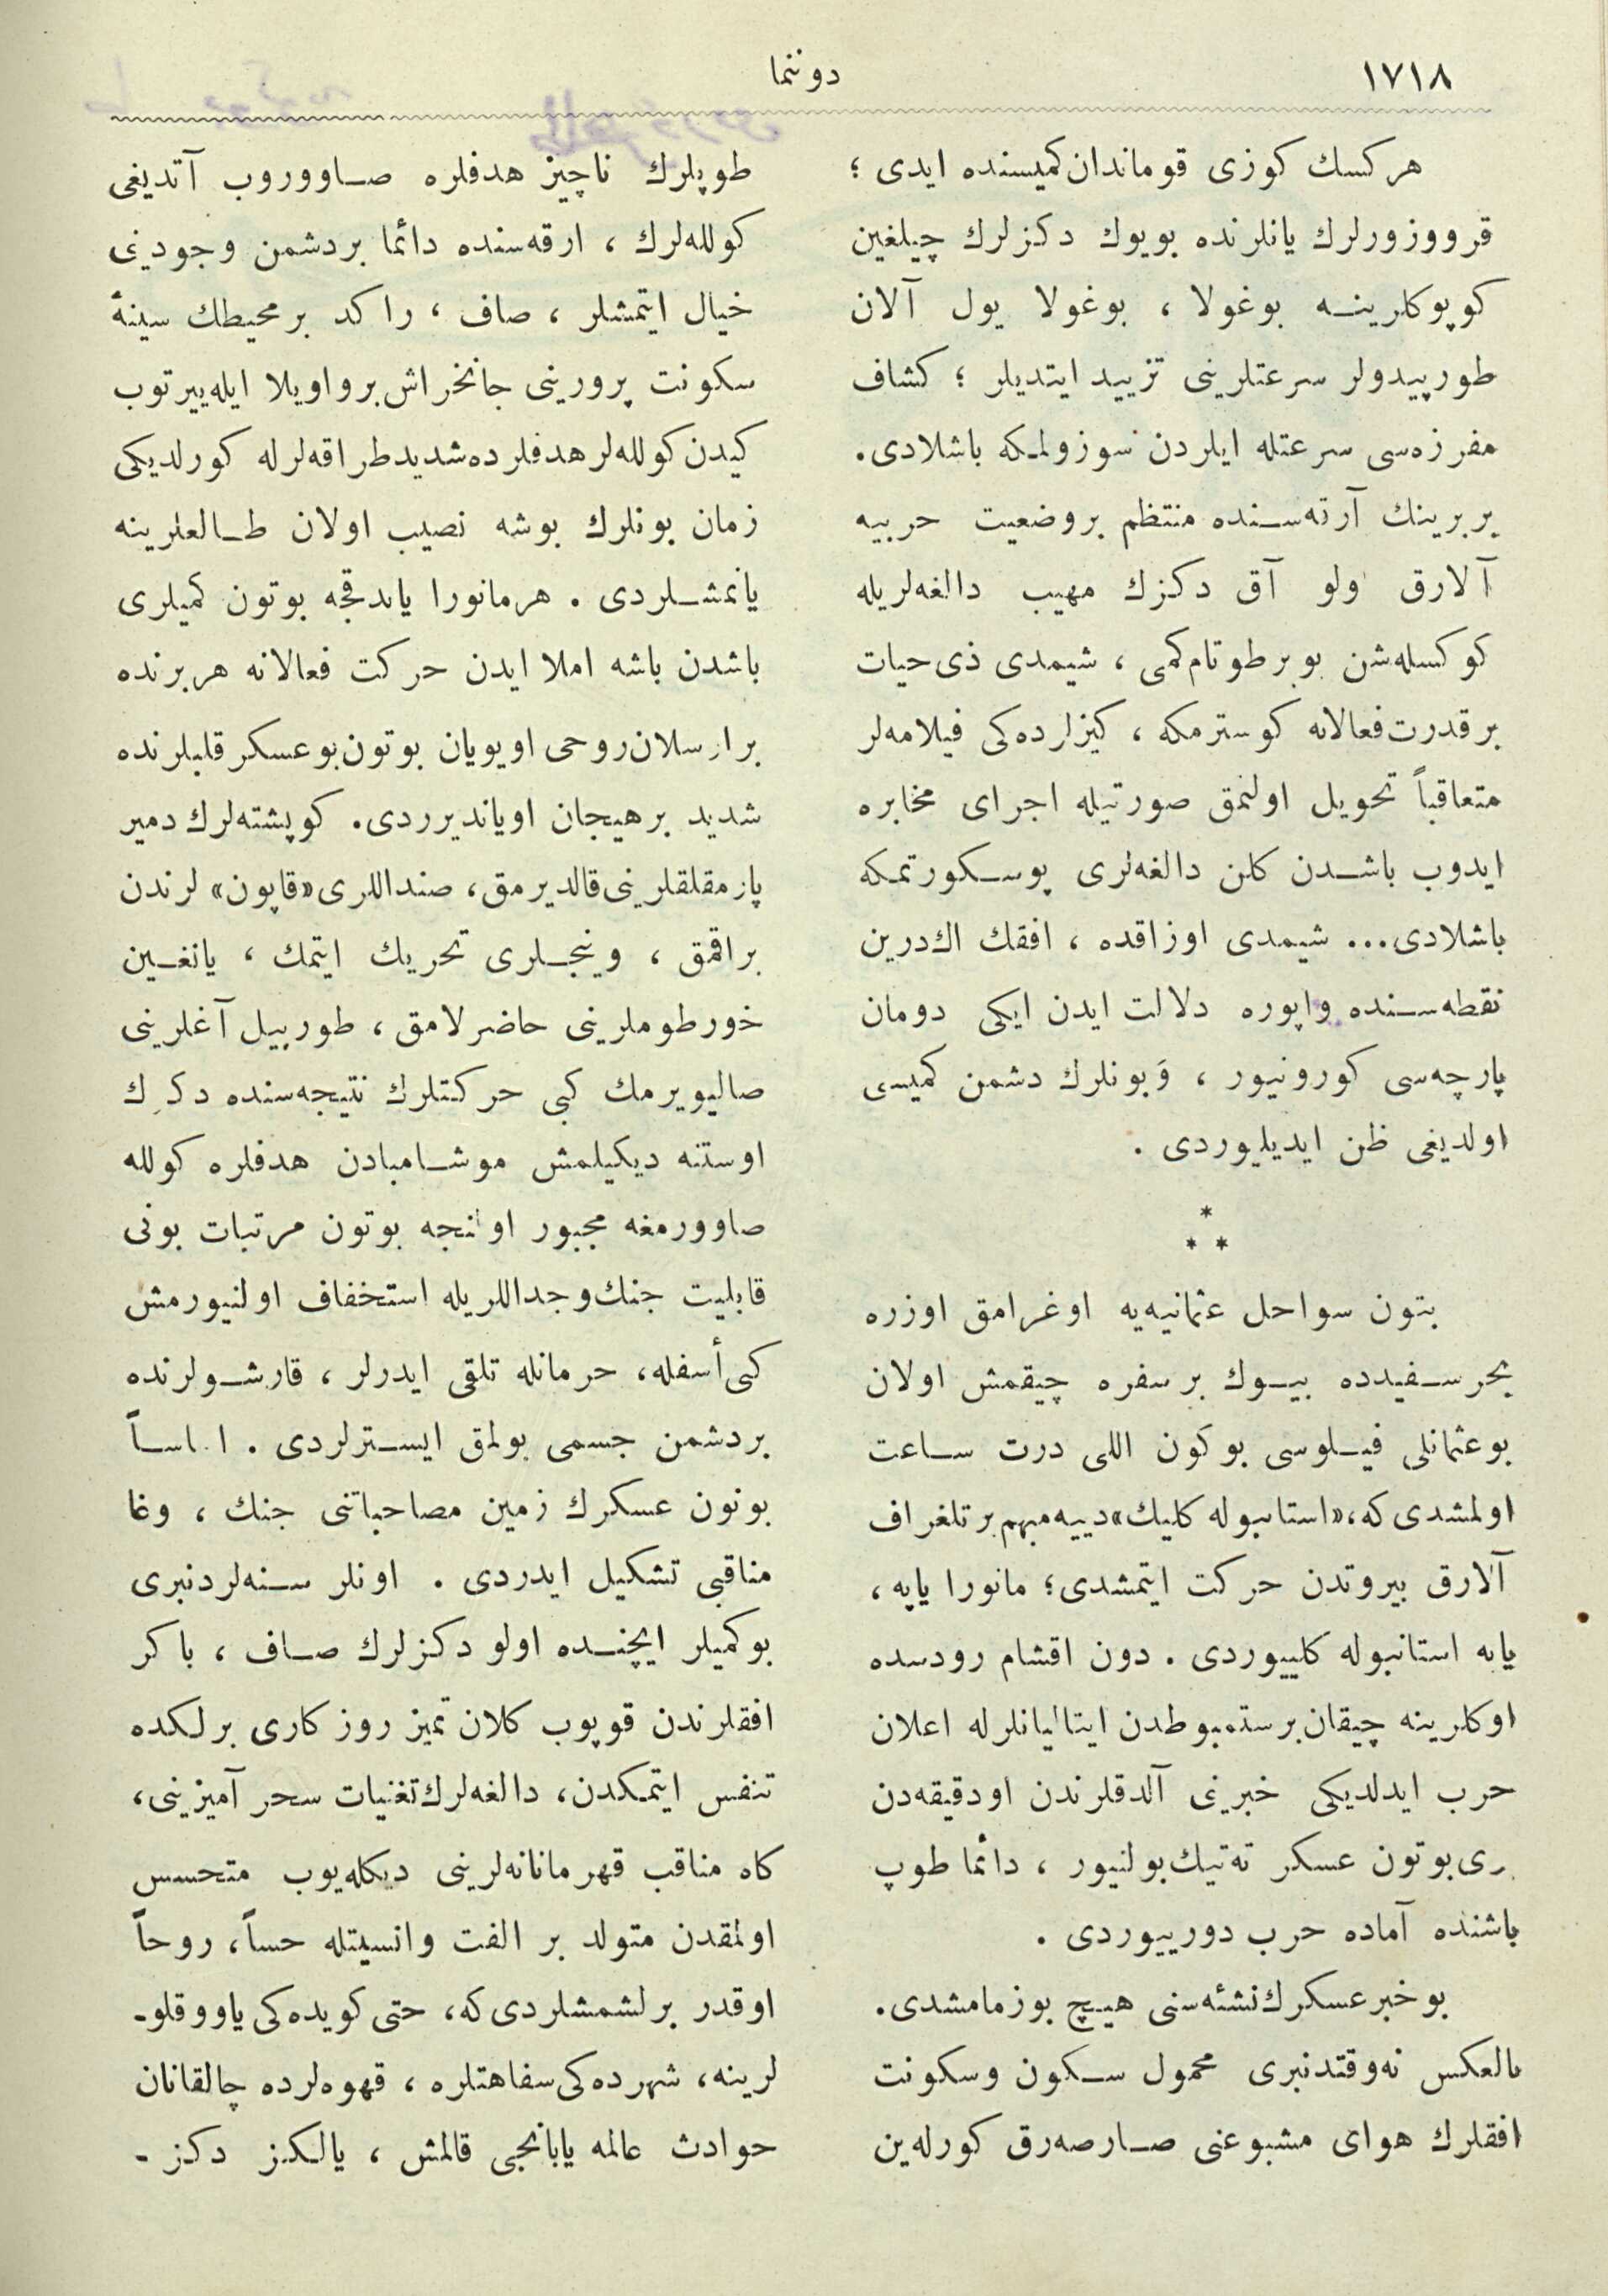 ١٧١٨
دوننما
هركسك كوزى قوماندان كميسنده ايدى ؛
قرووزورلرك يانلرنده بويوك دكزلرك چيلغين
كوپوكلرينه بوغولا ، بوغولا يول آلان
طورپيدولر سرعتلرينى تزييد ايتديلر ؛ كشاف
مفرزه‌سى سرعتله ايلردن سوزولمكه باشلادى.
بربرينك آرقه‌سنده منتظم بروضعيت حربيه
آلارق اولو آق دكزك مهيب دالغه‌لريله
كوكسله‌شن بوبرطوتام كمى ، شيمدى ذى حيات
برقدرت فعالانه كوسترمكه ، كيزلرده‌كى فيلامه‌لر
متعاقباً تحويل اولنمق صورتيله اجراى مخابره
ايدوب باشدن كلن دالغه‌لرى پوسكورتمكه
باشلادى... شيمدى اوزاقده ، افقك اك درين
نقطه‌سنده واپوره دلالت ايدن ايكى دومان
پارچه‌سى كورونيور ، وَ بونلرك دشمن كميسى
اولديغى ظن ايديليوردى .
*
* *
بتون سواحل عثمانيه‌يه اوغرامق اوزره
بحرسفيدده بيوك برسفره چيقمش اولان
بوعثمانلى فيلوسى بوكون اللى درت ساعت
اولمشدى كه، «استانبوله كليك» دييه مبهم برتلغراف
آلارق بيروتدن حركت ايتمشدى؛ مانورا ياپه ،
ياپه استانبوله كلييوردى . دون اقشام رودسده
اوكلرينه چيقان برستمبوطدن ايتاليانلرله اعلان
حرب ايدلديكى خبرينى آلدقلرندن اودقيقه‌دن
برى بوتون عسكر ته‌تيك بولنيور ، دائما طوپ
باشنده آماده حرب دورييوردى .
بوخبر عسكرك نشئه‌سنى هيچ بوزمامشدى.
بالعكس نه‌وقتدنبرى محمول سكون وسكونت
افقلرك هواى مشبوعنى صارصه‌رق كورله‌ين
طوپلرك ناچيز هدفلره صاووروب آتديغى
كولله‌لرك ، ارقه‌سنده دائما بردشمن وجودينى
خيال ايتمشلر ، صاف ، راكد برمحيطك سينهٔ
سكونت پرورينى جانخراش برواويلا ايله ييرتوب
كيدن كولله‌لر هدفلرده شديد طراقه‌لرله كورلديكى
زمان بونلرك بوشه نصيب اولان طالعلرينه
يانمشلردى . هرمانورا ياپدقجه بوتون كميلرى
باشدن باشه املا ايدن حركت فعالانه هربرنده
برارسلان روحى اويويان بوتون بوعسكر قلبلرنده
شديد برهيجان اوياندیرردى. كوپشته‌لرك دمير
پارمقلقلرينى قالديرمق، صنداللرى «قاپون» لرندن
براقمق ، وينجلرى تحريك ايتمك ، يانغين
خورطوملرينى حاضرلامق ، طورپيل آغلرينى
صاليويرمك كبى حركتلرك نتيجه‌سنده دكزك
اوستنه ديكيلمش موشامبادن هدفلره كولله
صاوورمغه مجبور اولنجه بوتون مرتبات بونى
قابليت جنك وجداللريله استخفاف اولنيورمش
كبى أسفله، حرمانله تلقى ايدرلر ، قارشولرنده
بردشمن جسمى بولمق ايسترلردى . اساساً
بوتون عسكرك زمين مصاحباتنى جنك ، وغا
مناقبى تشكيل ايدردى . اونلر سنه‌لردنبرى
بوكميلر ايچنده اولو دكزلرك صاف ، باكر
افقلرندن قوپوب كلان تميز روزكارى برلكده
تنفس ايتمكدن، دالغه‌لرك تغنيات سحر آميزينى،
كاه مناقب قهرمانانه‌لرينى ديكله‌يوب متحسس
اولمقدن متولد بر الفت وانسيتله حساً، روحاً
اوقدر برلشمشلردى كه، حتى كويده‌كى ياووقلو-
لرينه، شهرده‌كى سفاهتلره ، قهوه‌لرده چالقانان
حوادث عالمه يابانجى قالمش ، يالكز دكز -